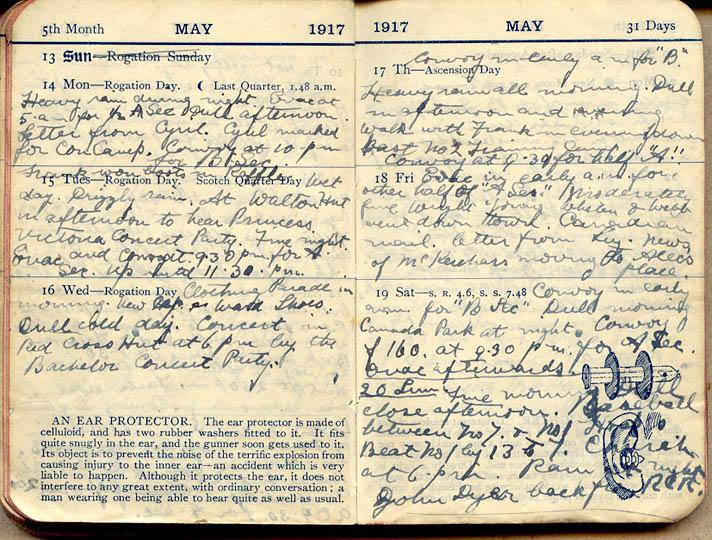 5th Month MAY 1917
13 Sun—Rogation Sunday
14 Mon—Rogation Day. ( Last Quarter, 1.48 a.m.
Heavy rain during night. Evac at
5 a.m for A Sec Dull afternoon.
letter from Cyril. Cyril marked
for Con Camp. Convoy at 10 p m
for D. Sec.
Frank won boots in Raffle
15 Tues—Rogation Day. Scotch Quarter Day Wet
day. Drizzly rain. At Walton Hut
in afternoon to hear Princess
Victoria Concert Party. Fine night.
Evac and Convoy 9.30 p.m. for A
Sec. Up until 11.30 p.m.
16 Wed—Rogation Day Clothing Parade in
morning. New cap & Shoes.
Dull cold day. Concert in
Red Cross Hut at 6 p m by the
Bachelor Concert Party.
AN EAR PROTECTOR. The ear protector is made of
celluloid, and has two rubber washers fitted to it. It fits
quite snugly in the ear, and the gunner soon gets used to it.
Its object is to prevent the noise of the terrific explosion from
causing injury to the inner ear—an accident which is very
liable to happen. Although it protects the ear, it does not
interfere to any great extent, with ordinary conversation; a
man wearing one being able to hear quite as well as usual.
1917 MAY 31 Days
Convoy in early a m for "B".
17 Th—Ascension Day
Heavy rain all morning. Dull
in afternoon and evening
walk with Frank in evening down
Past No 2 Training Camp
Convoy at 9.30 for half "A"!!
18 Fri Evac in early a.m. for
other half of "A Sec" Moderately
fine. Wright Young Whelen & Webb
went down town. Canadian
mail. letter from Luy. News
of McKerchers moving to Alecs
place.
19 Sat—S. R. 4.6, S. S. 7.48 Convoy in early
a.m. for "B Sec" Dull morning
Canada Park at night. Convoy
of 160. at 9.30 p m. for A Sec.
Evac afterwards
20 Sun Fine morning Dull
close afternoon. Baseball
between No 7. & No 1
Beat No 1 by 13 to 7. Church
at 6 p.m. Rain at night
John Dyer back from